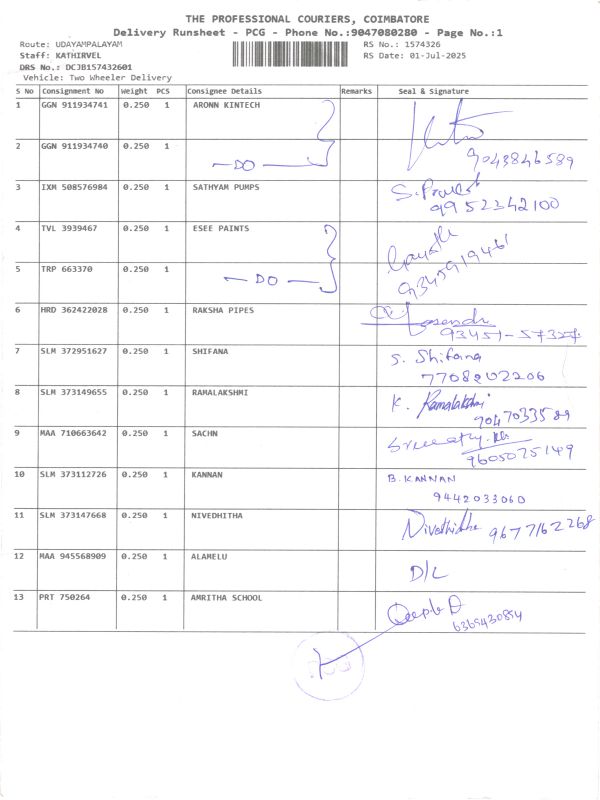 THE PROFESSIONAL COURIERS, COIMBATORE
Delivery Runsheet - PCG - Phone No.:9047080280 - Page No.:1
Route: UDAYAMPALAYAM RS No.: 1574326
Staff: KATHIRVEL RS Date: 01-Jul-2025
DRS No.: DCJB157432601
Vehicle: Two Wheeler Delivery
S No Consignment No Weight PCS Consignee Details Remarks Seal & Signature
1 GGN 911934741 0.250 1 ARONN KINTECH
2 GGN 911934740 0.250 1 —DO— 9043846589
3 IXM 508576984 0.250 1 SATHYAM PUMPS
9952342100
4 TVL 3939467 0.250 1 ESEE PAINTS
5 TRP 663370 0.250 1 —DO— 9345919461
6 HRD 362422028 0.250 1 RAKSHA PIPES
93451-57327
7 SLM 372951627 0.250 1 SHIFANA S. Shifana
7708202206
8 SLM 373149655 0.250 1 RAMALAKSHMI K. Ramalakshmi
9047033589
9 MAA 710663642 0.250 1 SACHN
9605075149
10 SLM 373112726 0.250 1 KANNAN B. KANNAN
9442033060
11 SLM 373147668 0.250 1 NIVEDHITHA Nivedhitha 9677162268
12 MAA 945568909 0.250 1 ALAMELU D/L
13 PRT 750264 0.250 1 AMRITHA SCHOOL Deepa D
6369430854